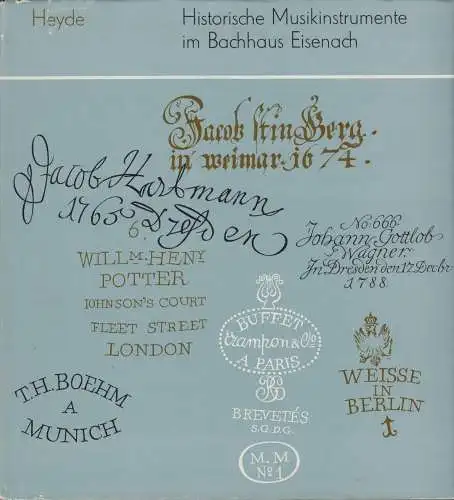 Heyde
Historische Musikinstrumente
im Bachhaus Eisenach
Jacob
in weimar. 1674.
Jacob Hartmann
1765 Dresden
6.
No. 666.
Johann Gottlob
Wagner.
In Dresden den 17. Decbr
1788
WILLM HENY
POTTER
JOHNSON'S COURT
FLEET STREET
LONDON
BUFFET
Crampon & Cie
A PARIS
BREVETÉS
S.G.D.G.
M.M
No 1
WEISSE
IN
BERLIN
T.H. BOEHM
A
MUNICH